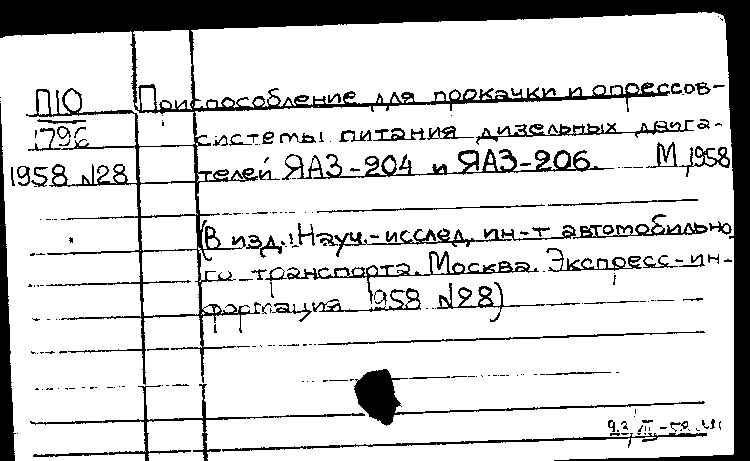 П10
1796
1958 №28
Приспособление для прокачки и опрессов-
системы питания дизельных двига-
телей ЯАЗ-204 и ЯАЗ-206. М, 1958
(В изд.: Науч.-исслед. ин-т автомобильно
го транспорта. Москва. Экспресс-ин-
формация 1958 №28)